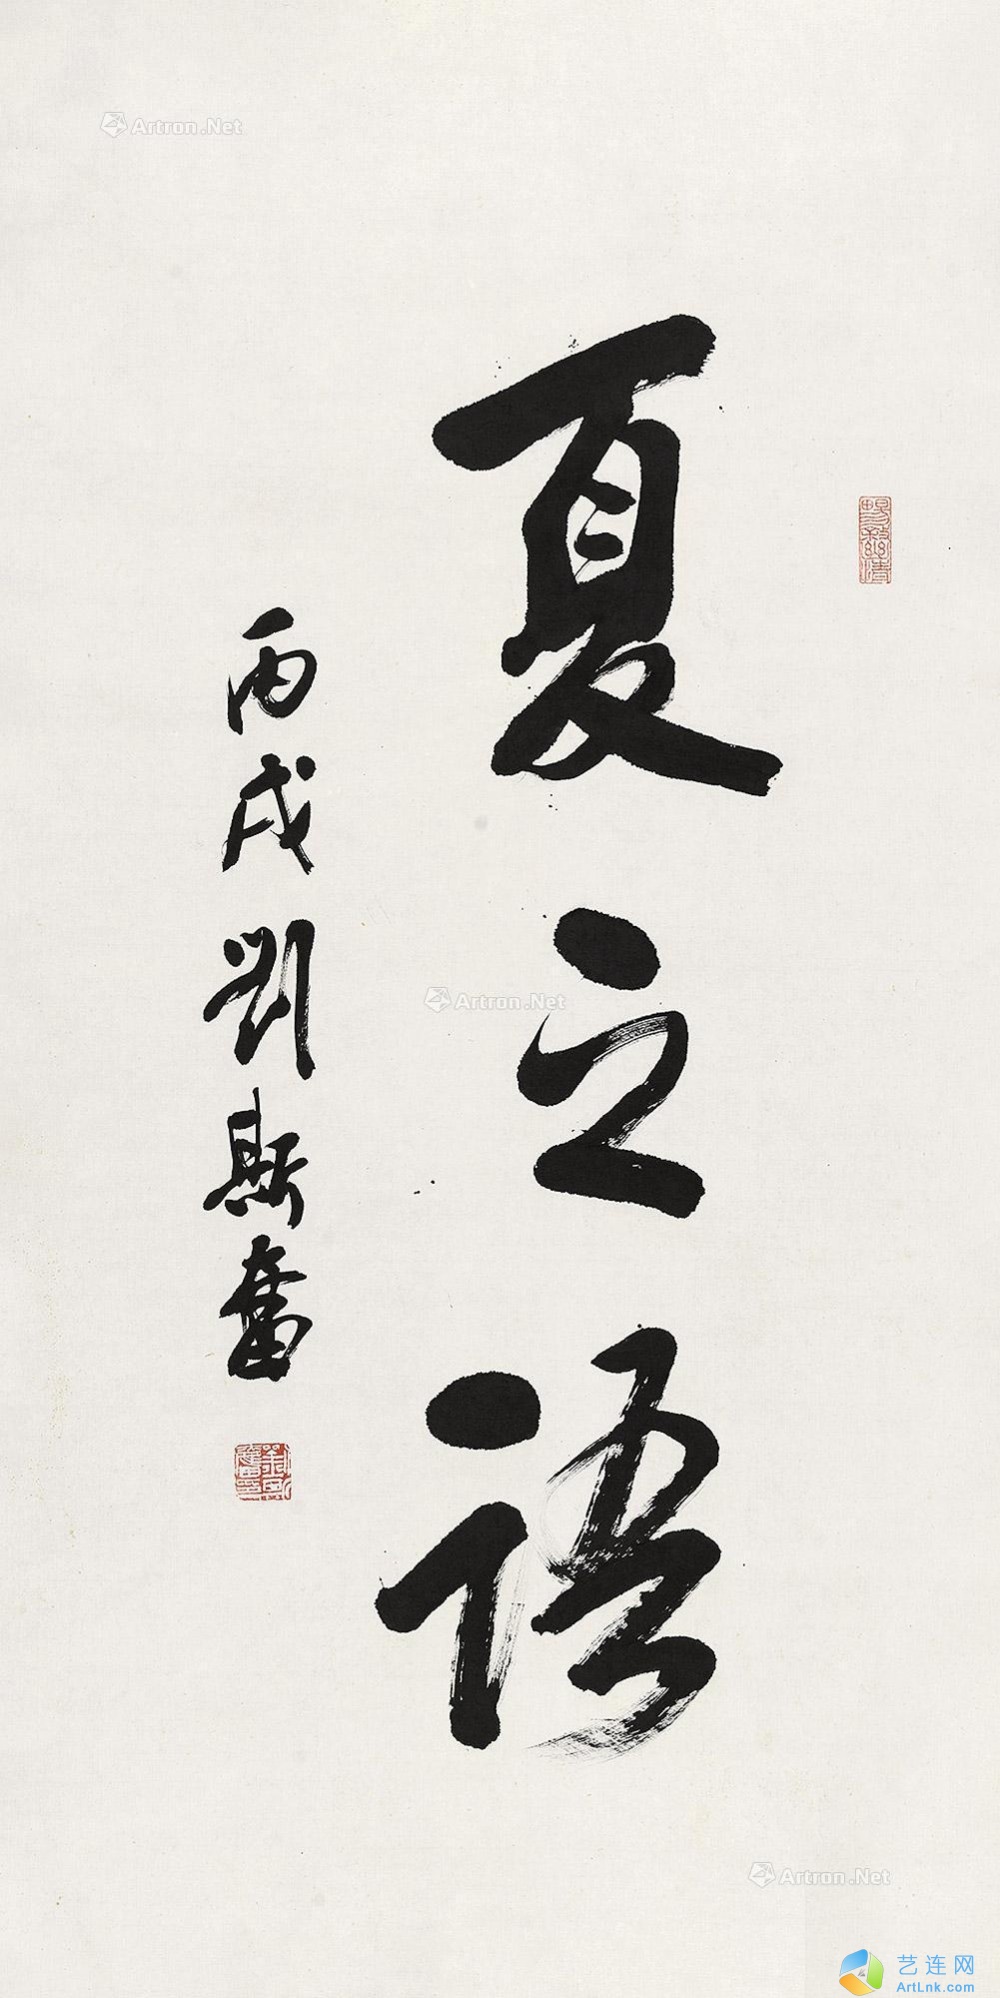 夏之語
丙戌劉斯奮
Artron.Net
Artron.Net
Artron.Net
艺连网
ArtLnk.com